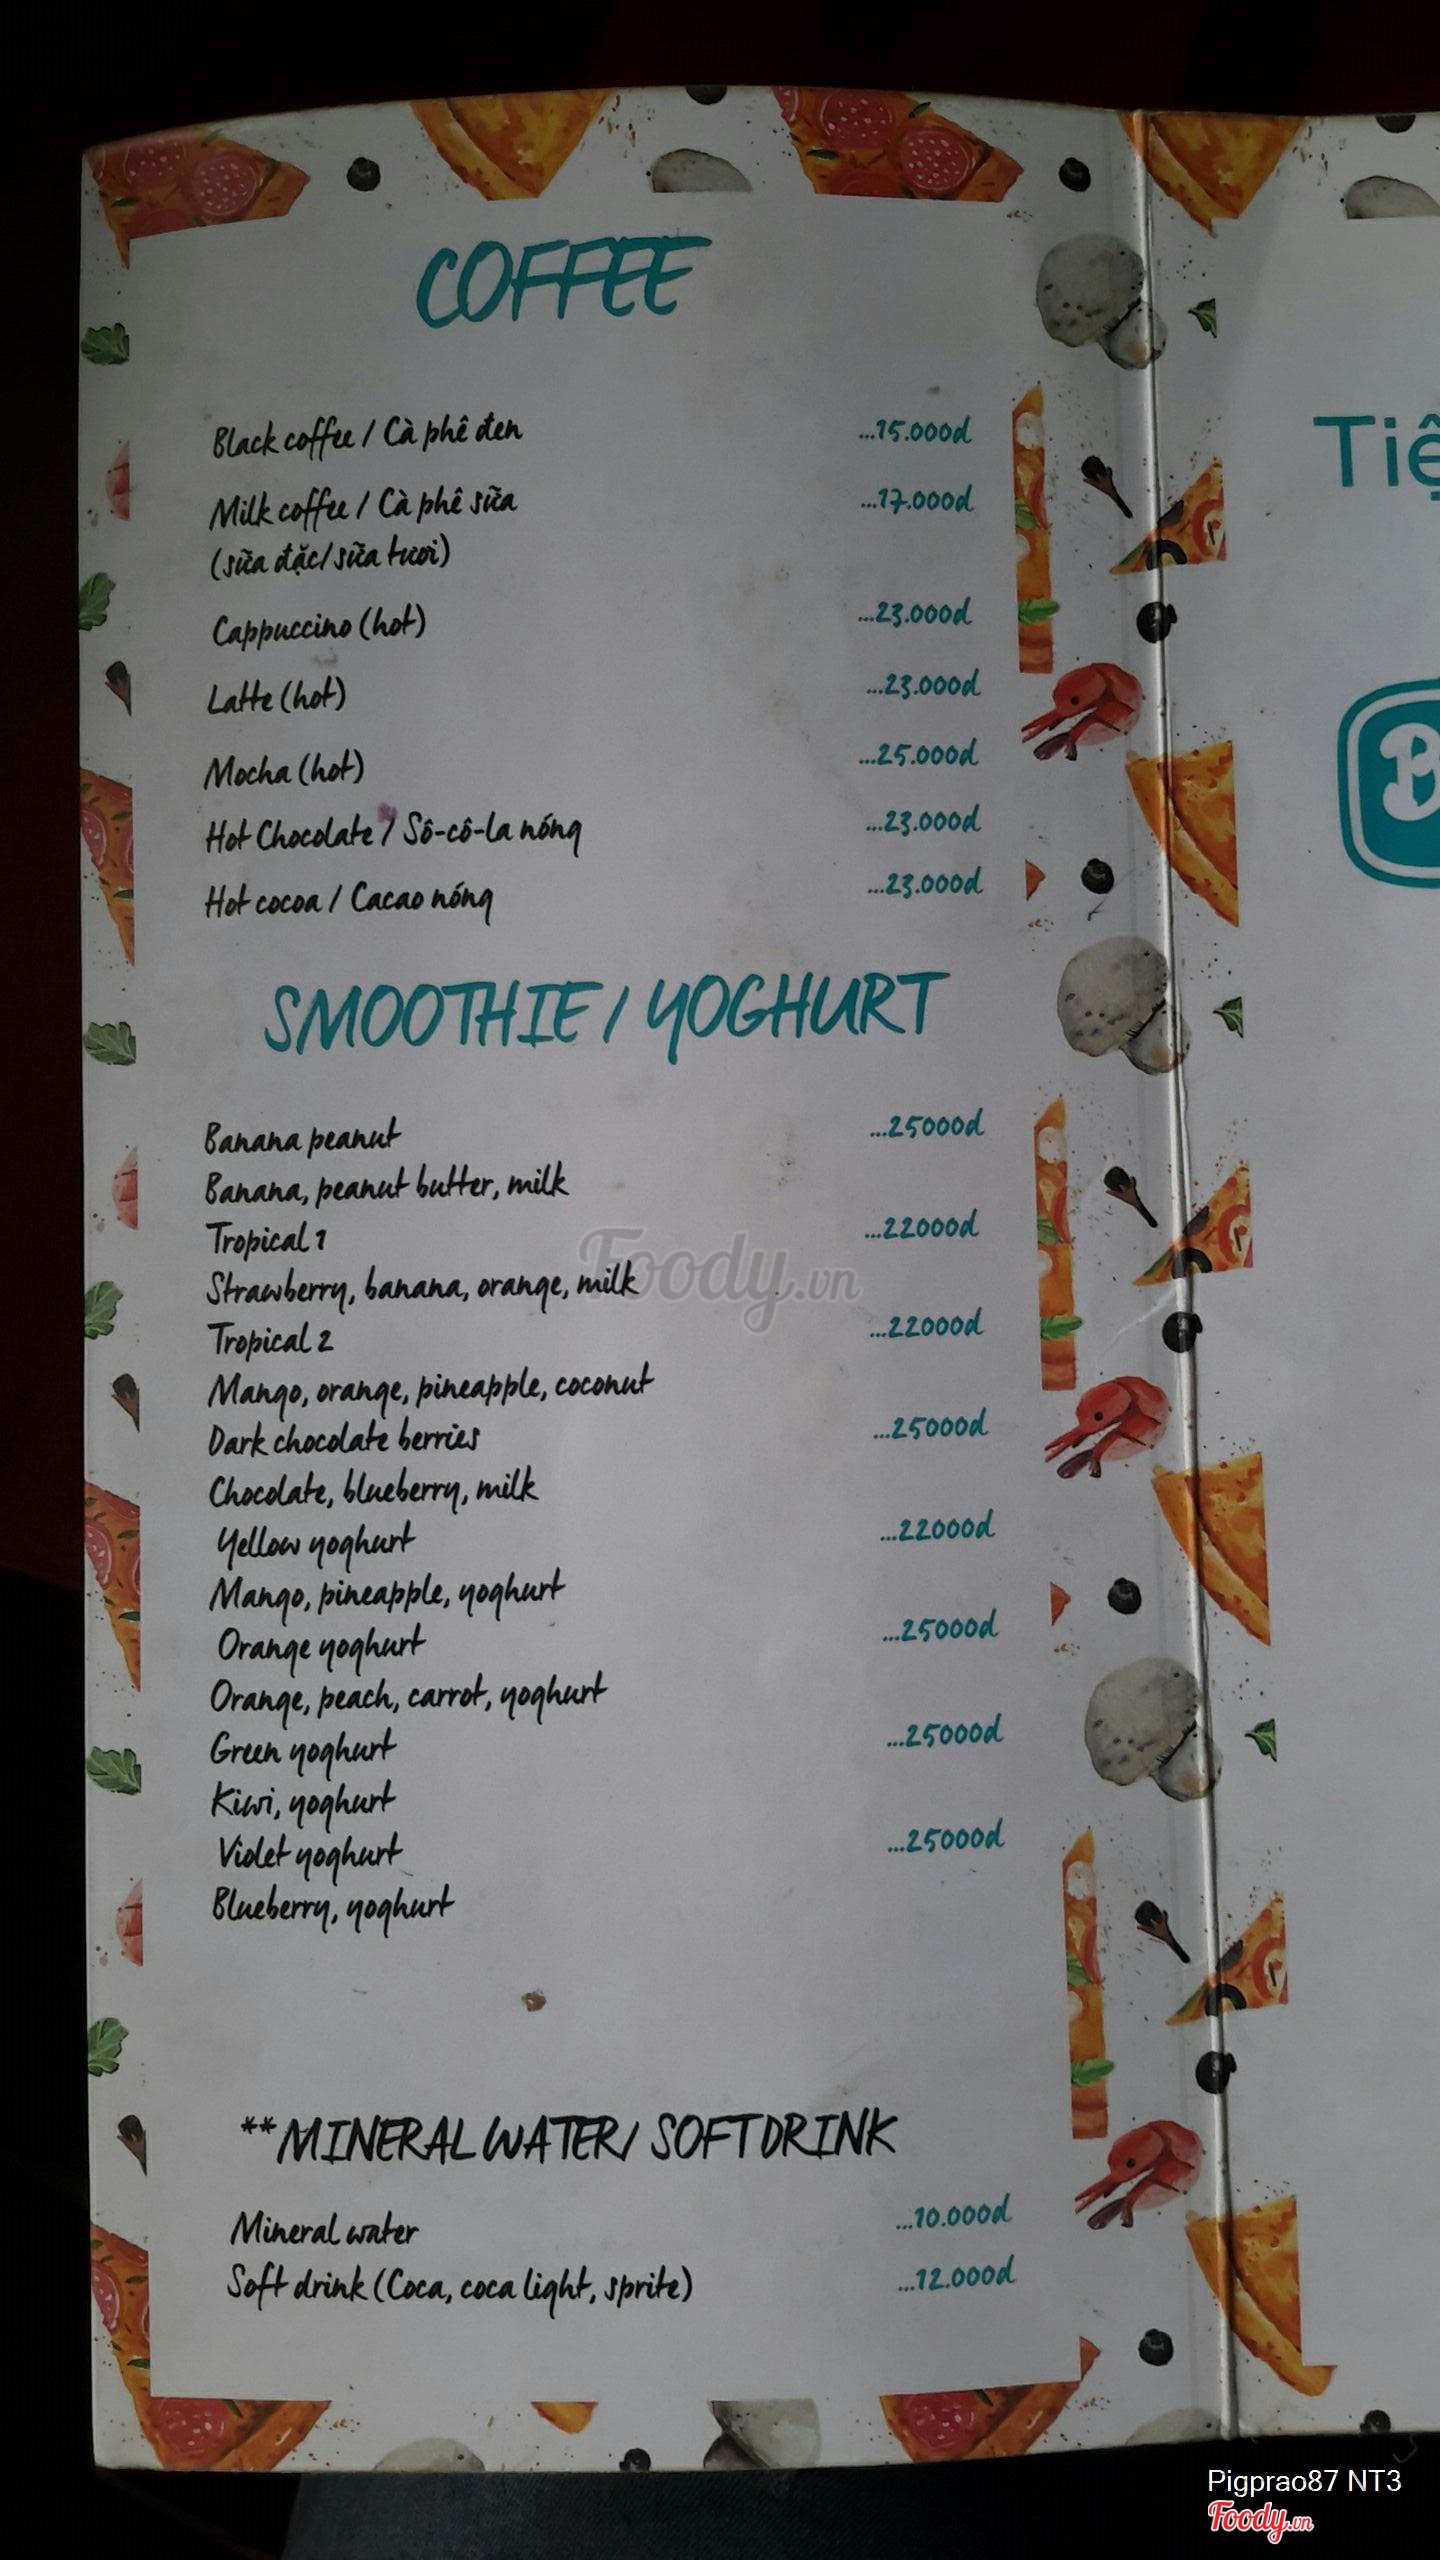 COFFEE
Black coffee / Cà phê đen ...15.000đ
Milk coffee / Cà phê sữa ...17.000đ
(sữa đặc/sữa tươi)
Cappuccino (hot) ...23.000đ
Latte (hot) ...23.000đ
Mocha (hot) ...25.000đ
Hot Chocolate / Sô-cô-la nóng ...23.000đ
Hot cocoa / Cacao nóng ...23.000đ
SMOOTHIE / YOGHURT
Banana peanut ...25000đ
Banana, peanut butter, milk
Tropical 1 ...22000đ
Strawberry, banana, orange, milk
Tropical 2 ...22000đ
Mango, orange, pineapple, coconut
Dark chocolate berries ...25000đ
Chocolate, blueberry, milk
Yellow yoghurt ...22000đ
Mango, pineapple, yoghurt
Orange yoghurt ...25000đ
Orange, peach, carrot, yoghurt
Green yoghurt ...25000đ
Kiwi, yoghurt
Violet yoghurt ...25000đ
Blueberry, yoghurt
**MINERAL WATER/ SOFT DRINK
Mineral water ...10.000đ
Soft drink (Coca, coca light, sprite) ...12.000đ
Tiệ
B
Foody.vn
Pigprao87 NT3
Foody.vn